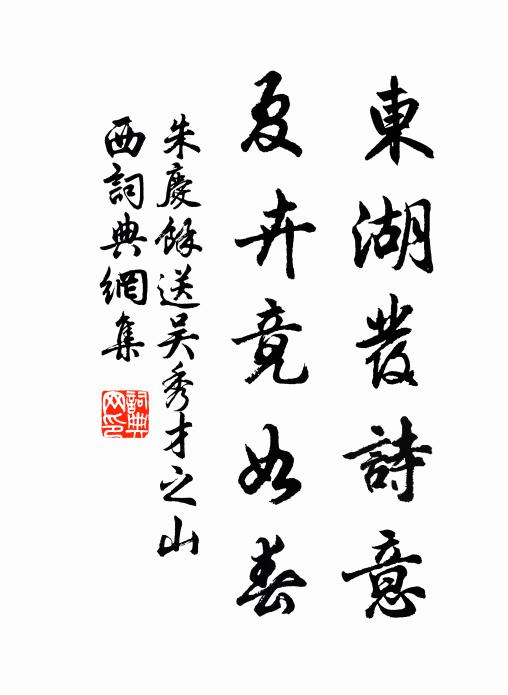 東湖發詩意
夏卉竟如春
朱慶餘送吴秀才之山
西詞典網集
詞典网印